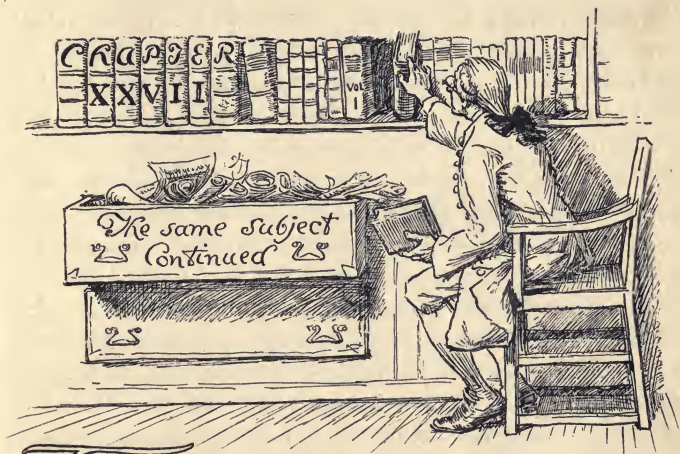 ChaPTER
XXVII
VOL
I
The same subject
Continued